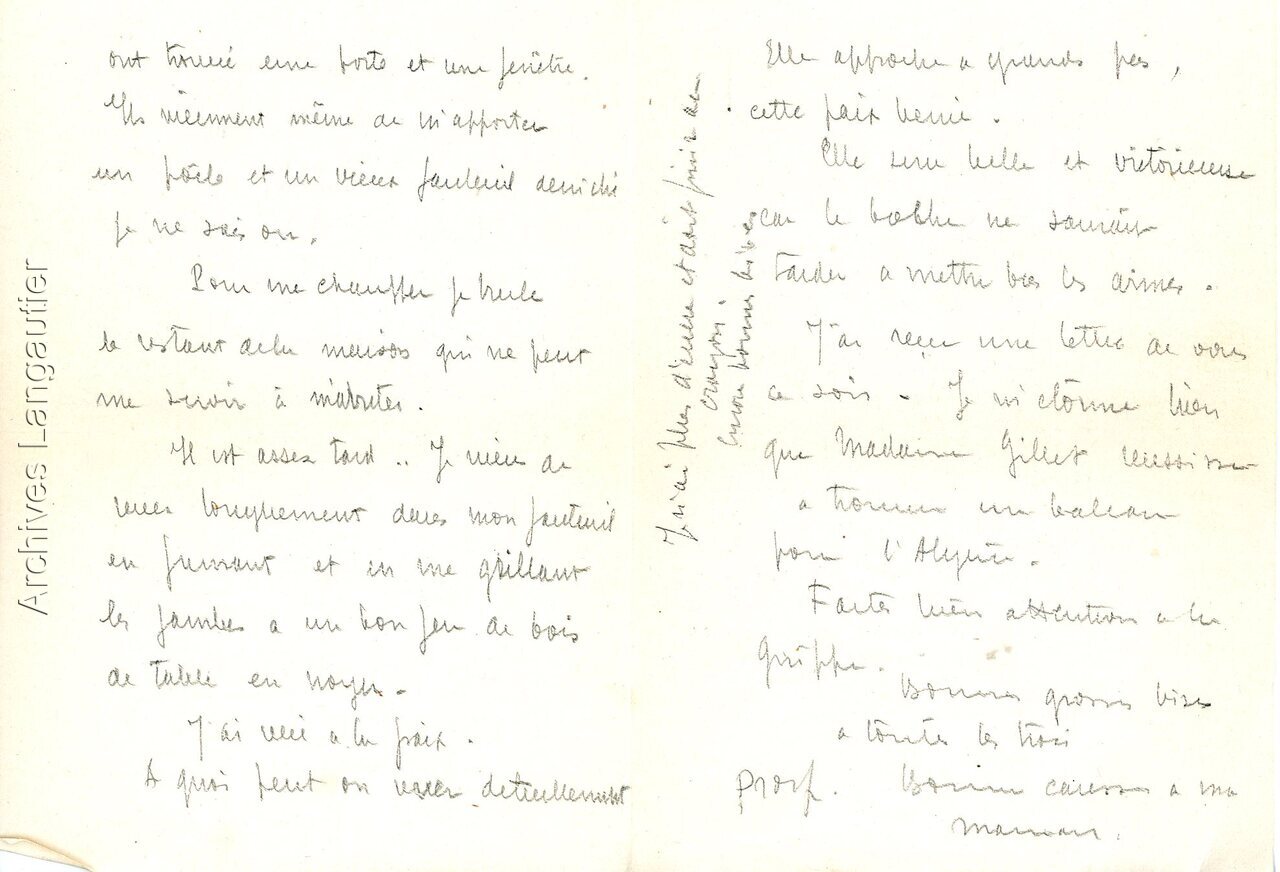 ont trouvé une porte et une fenêtre.
Ils viennent même de m'apporter
un poêle et un vieux fauteuil déniché
je ne sais où.
Pour me chauffer je brule
le restant de la maison qui ne peut
me servir à m'abriter.
Il est assez tard .. Je viens de
rever longuement dans mon fauteuil
en fumant et en me grillant
les jambes a un bon feu de bois
de table en noyer.
J'ai revé a la paix.
A quoi peut on rever actuellement
Elle approche a grands pas,
cette paix benie.
Elle sera belle et victorieuse
car le boche ne saurait
tarder a mettre bas les armes.
J'ai reçu une lettre de vous
ce soir. Je m'étonne bien
que Madame Gillet reussisse
a trouver un bateau
pour l'Algérie.
Faites bien attention a la
Grippe.
Bonnes grosses bises
a toutes les trois
Bonne caresses a ma
maman.
Je n'ai plus d'encre et dois finir au
crayon.
Encore bonnes bises
Archives Langautier